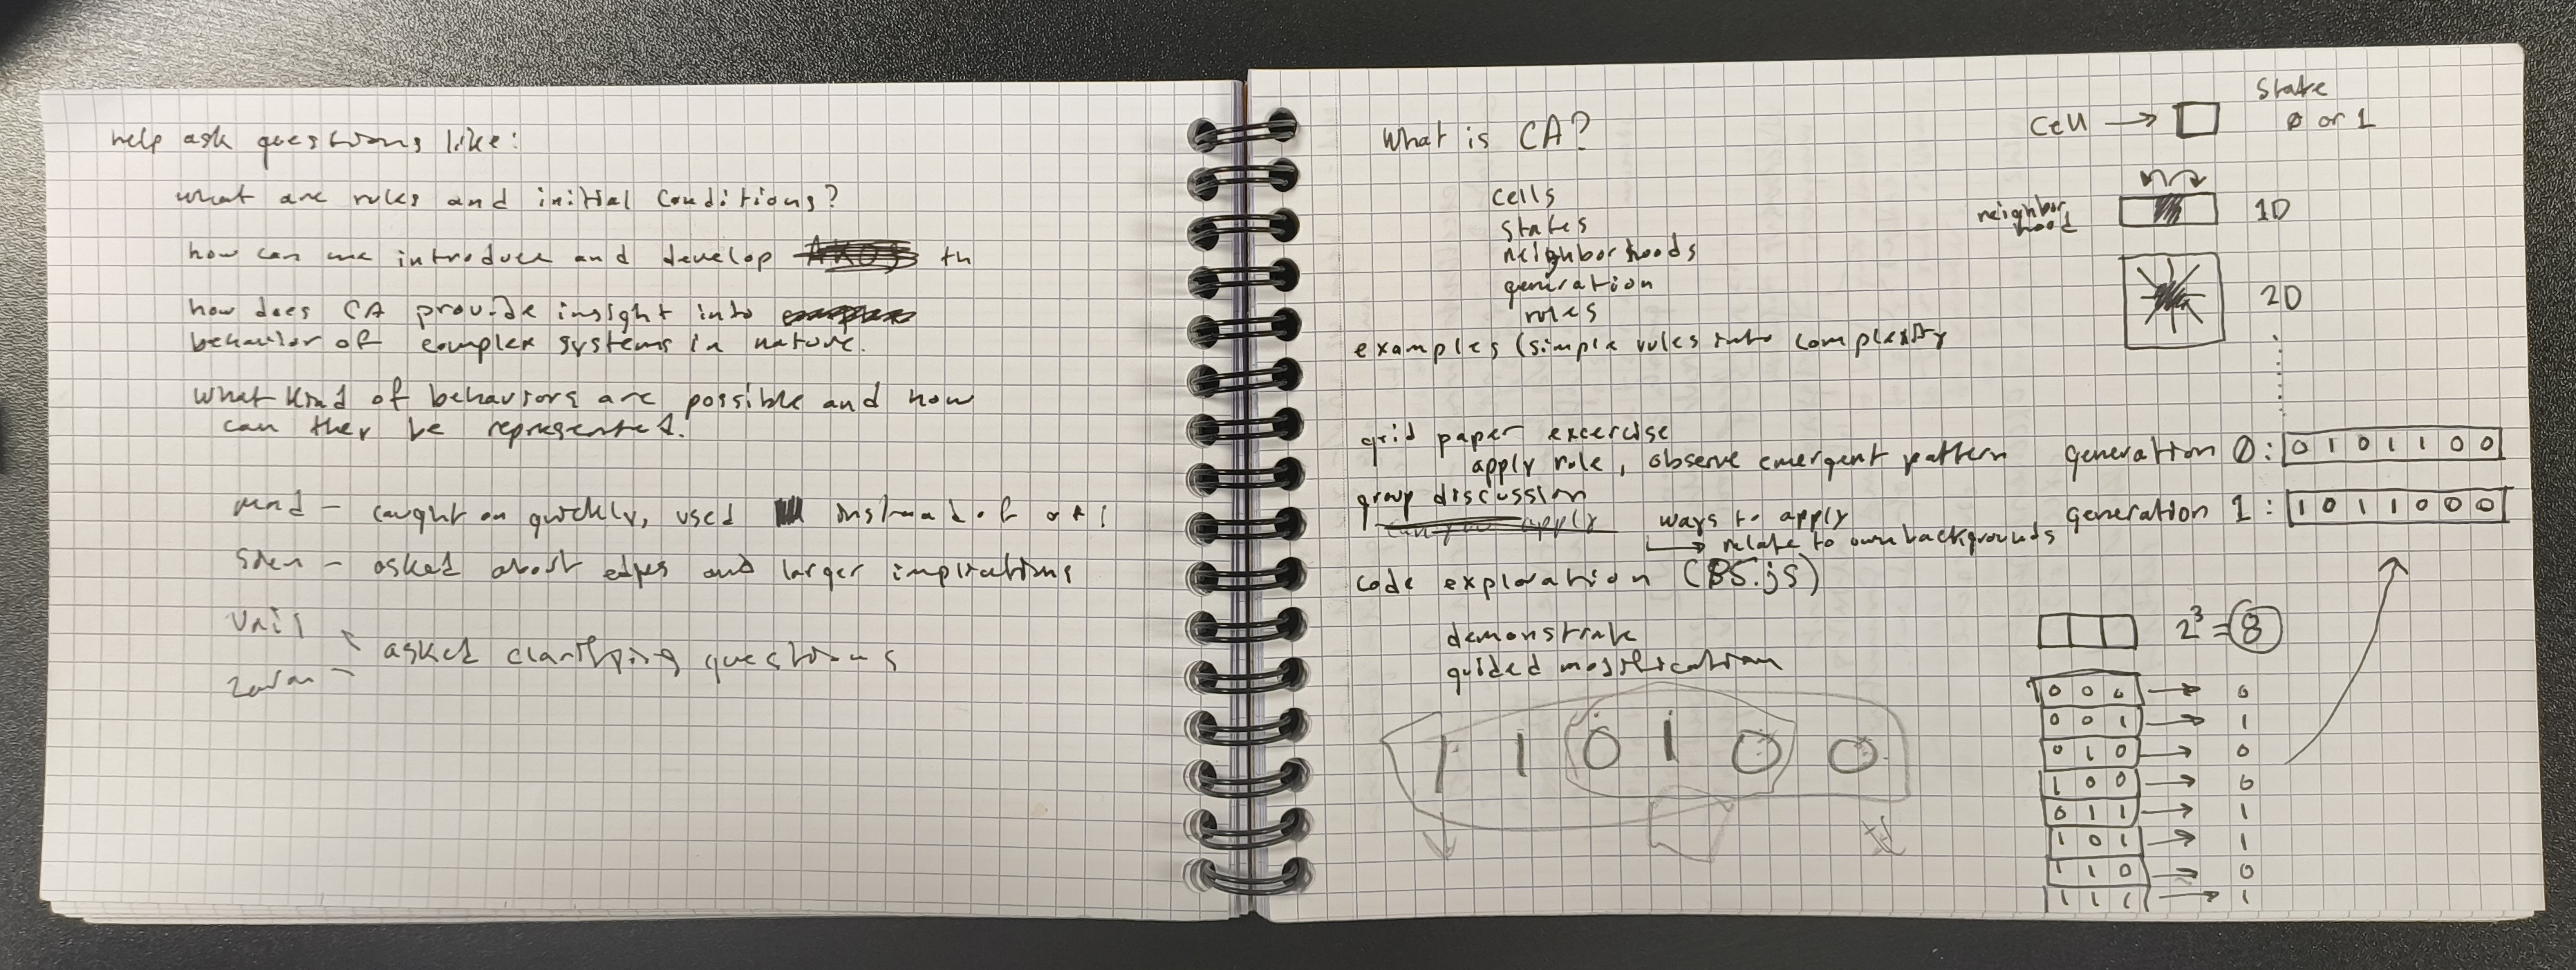 help ask questions like:
what are rules and initial conditions?
how can we introduce and develop th
how does CA provide insight into
behavior of complex systems in nature.
What kind of behaviors are possible and how
can they be represented.
caught on quickly, used instead of or
asked about edges and larger implications
asked clarifying questions
What is CA?
cells
states
neighborhoods
generation
rules
examples (simple rules into complexity
grid paper excercise
apply rule, observe emergent pattern
group discussion
ways to apply
relate to own backgrounds
code exploration (P5.js)
demonstrate
guided modification
1 1 0 1 0 0
State
Cell → 0 or 1
neighbor
hood
1D
2D
generation 0: 0 1 0 1 1 0 0
generation 1: 1 0 1 1 0 0 0
2³ = 8
0 0 0 → 0
0 0 1 → 1
0 1 0 → 0
1 0 0 → 0
0 1 1 → 1
1 0 1 → 1
1 1 0 → 0
1 1 1 → 1